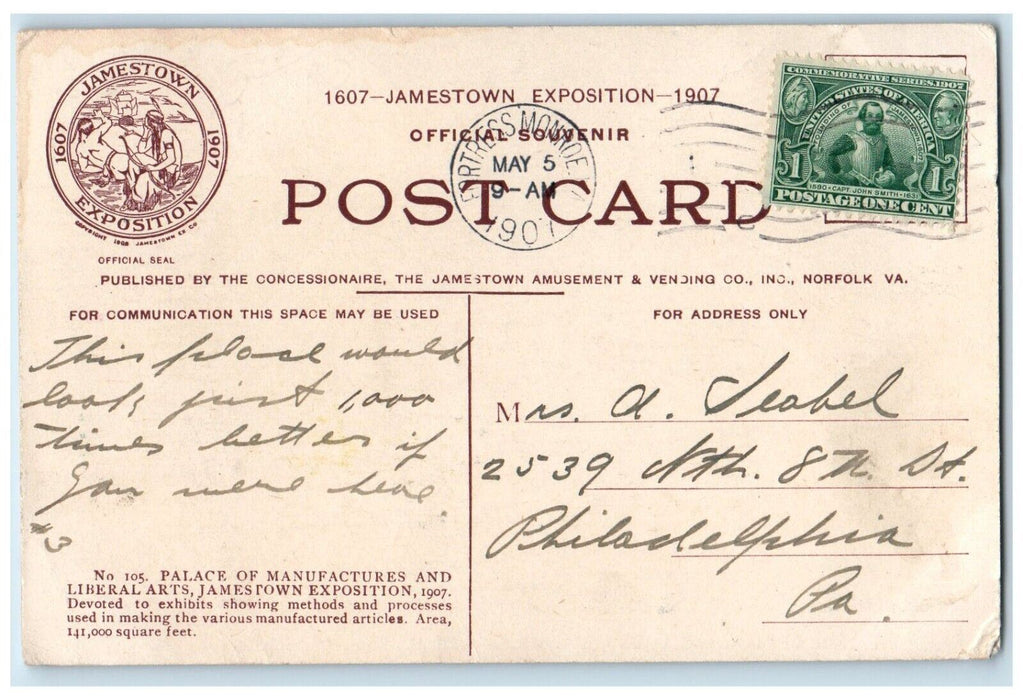 JAMESTOWN
1607 1907
EXPOSITION
COPYRIGHT 1906 JAMESTOWN EX CO
OFFICIAL SEAL
1607—JAMESTOWN EXPOSITION—1907
OFFICIAL SOUVENIR
POST CARD
FORTRESS MONROE
MAY 5
9-AM
1907
COMMEMORATIVE SERIES, 1907
UNITED STATES OF AMERICA
1580•CAPT. JOHN SMITH•1631
1 1
POSTAGE ONE CENT
PUBLISHED BY THE CONCESSIONAIRE, THE JAMESTOWN AMUSEMENT & VENDING CO., INC., NORFOLK VA.
FOR COMMUNICATION THIS SPACE MAY BE USED
This place would
look just 1,000
times better if
you were here.
#3
No 105. PALACE OF MANUFACTURES AND
LIBERAL ARTS, JAMESTOWN EXPOSITION, 1907.
Devoted to exhibits showing methods and processes
used in making the various manufactured articles. Area,
141,000 square feet.
FOR ADDRESS ONLY
Mrs. A. Seabel
2539 Nth. 8th St.
Philadelphia
Pa.